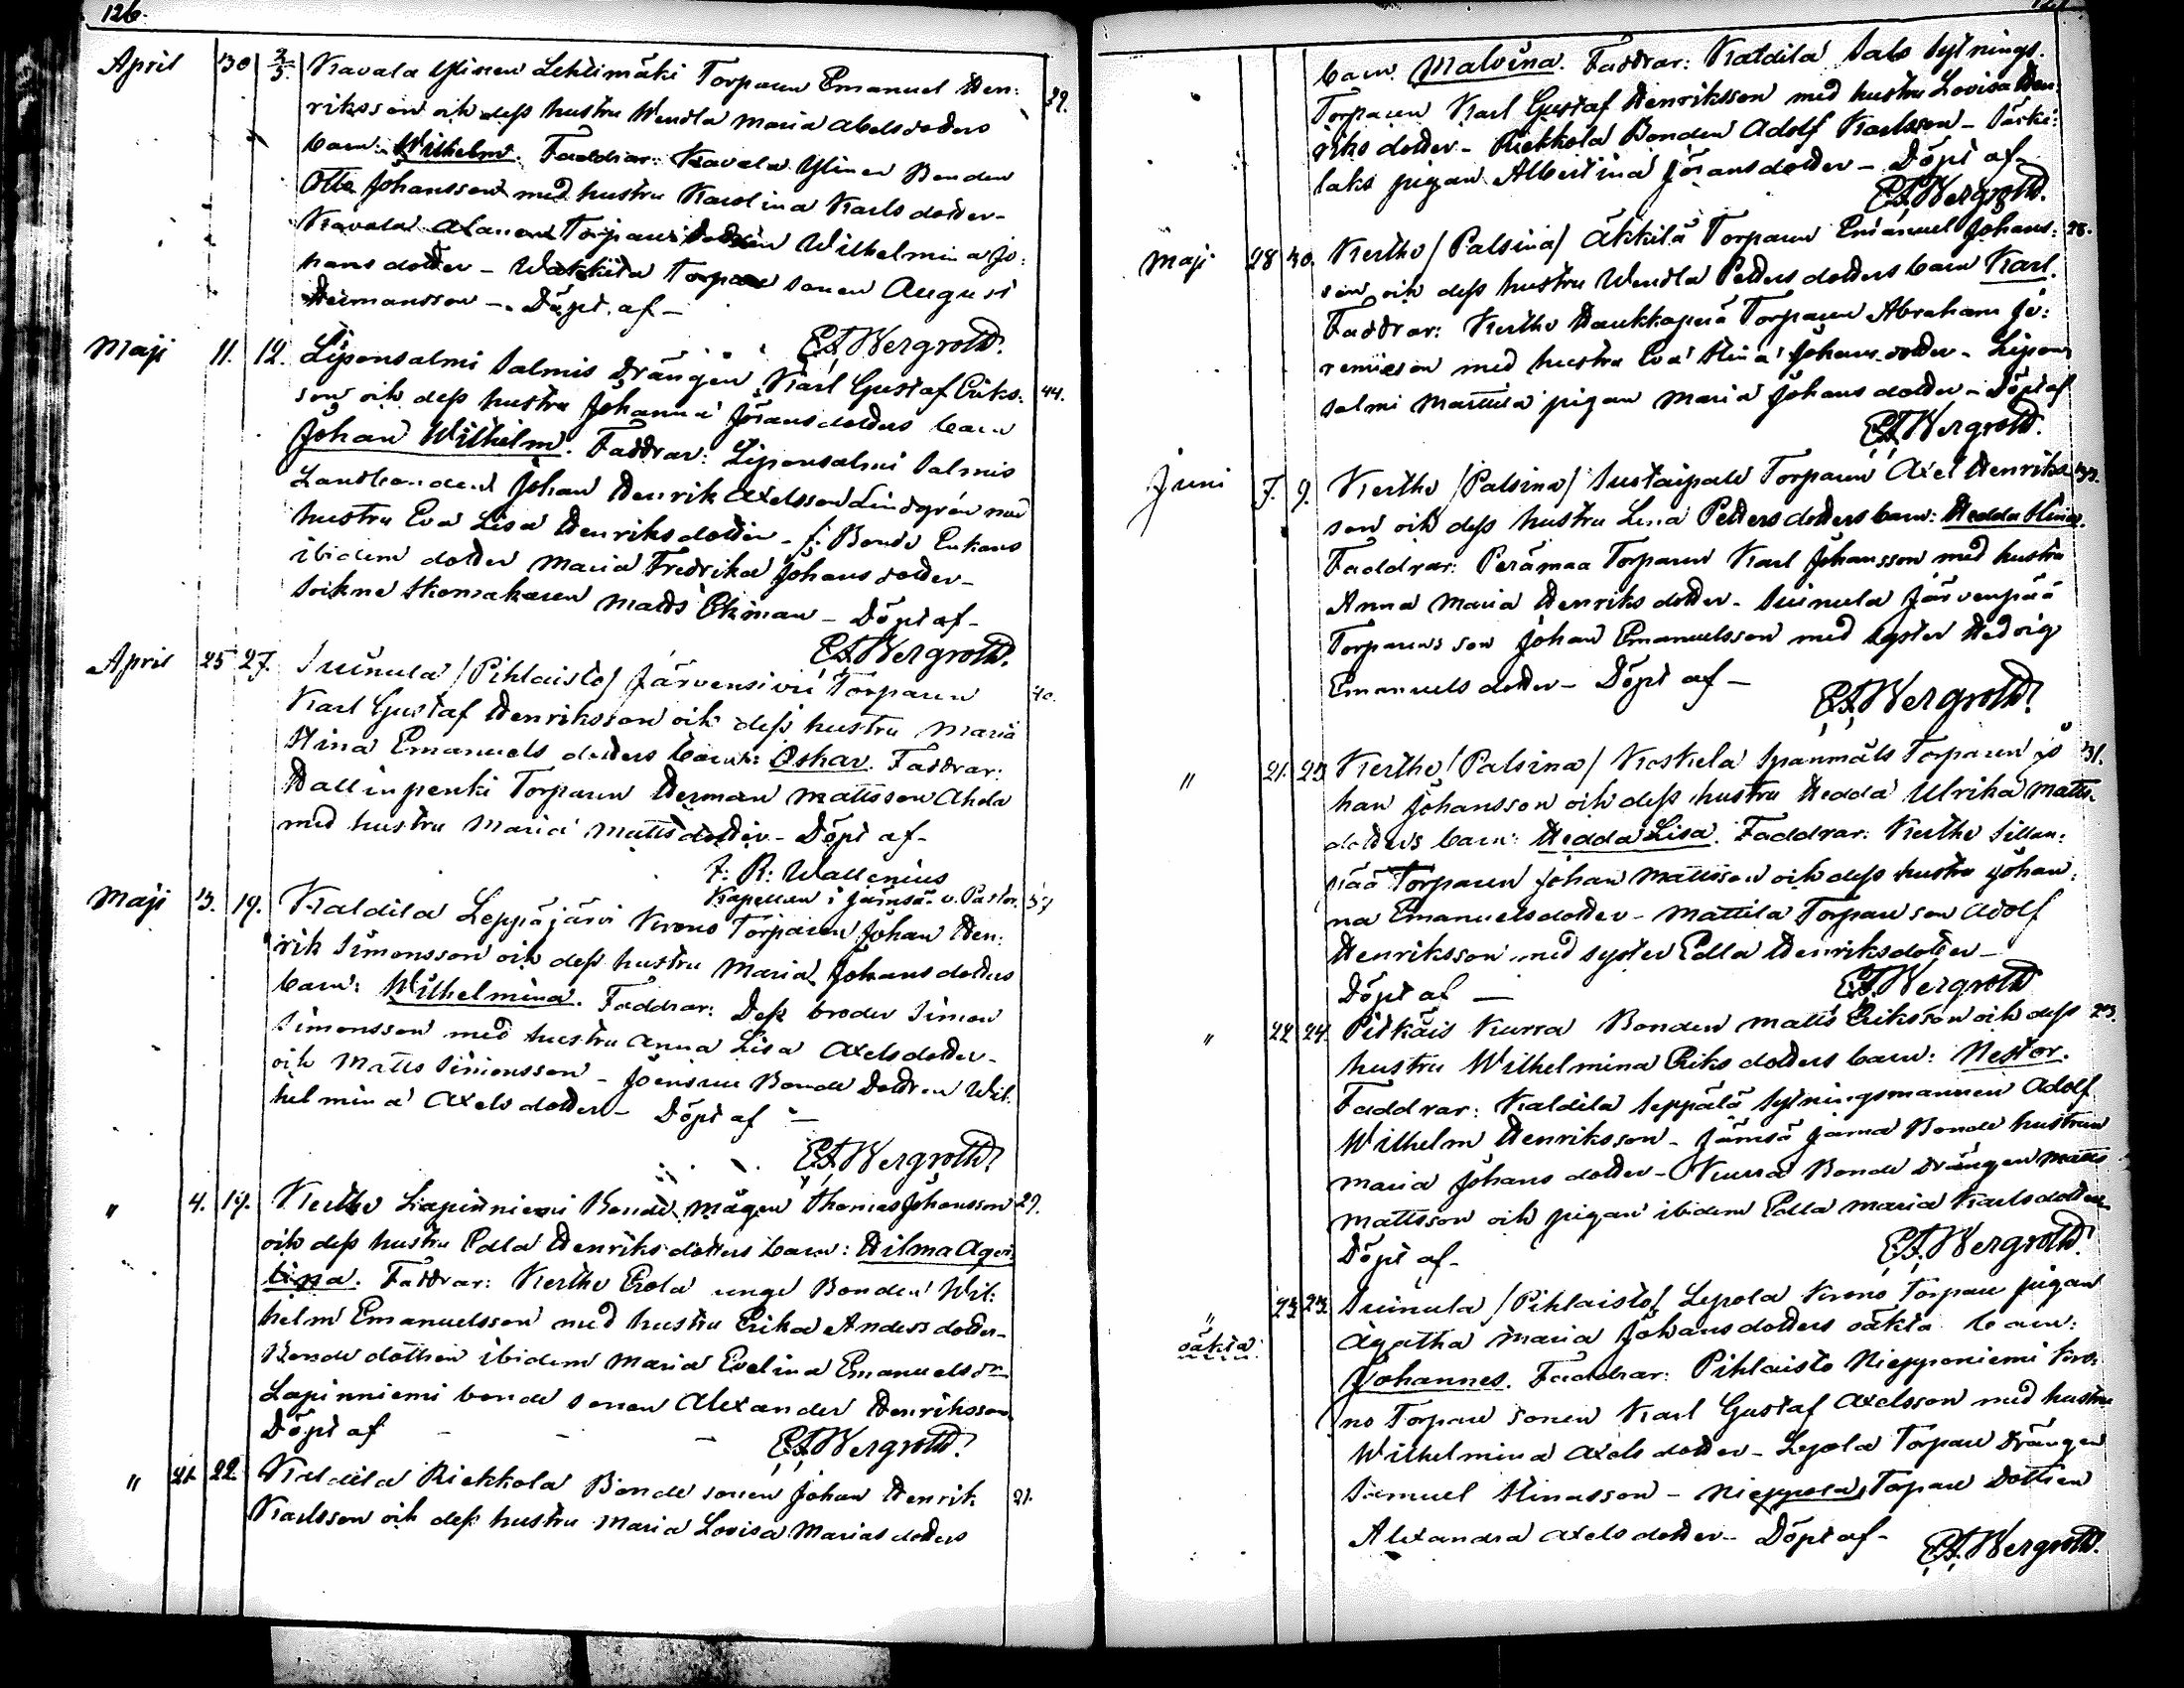 126.
April 30 2/5. Kavala Ylinen Lehtimäki Torparen Emanuel Hen: 39.
riksson och dess hustru Wendla Maria Abelsdotters
barn: Wilhelm. Faddrar: Kavala Ylinen Bonden
Otto Johansson med hustru Karolina Karlsdotter-
Kavala Alanen Torpare Wilhelmina Jo:
hansdotter - Torpare sonen August
Hermansson - Döpt af -
E.A. Wergroth.
Maji 11. 12. Liponsalmi Salmis Drängen Karl Gustaf Eriks: 44.
son och dess hustru Johanna Jöransdotters barn
Johan Wilhelm. Faddrar: Liponsalmi Salmis
Landbonden Johan Henrik Axelsson Lindgrén med
hustru Eva Lisa Henriksdotter - f. Bonde Enkans
ibidem dotter Maria Fredrika Johansdotter-
Soikne Skomakaren Matts Ekman - Döpt af -
E.A. Wergroth.
April 25 27. Juinula /Pihlaisto/ Järvensivu Torparen 40.
Karl Gustaf Henriksson och dess hustru Maria
Stina Emanuels dotters barn: Oskar. Faddrar:
Hallinpenki Torparen Herman Mattsson Ahola
med hustru Maria Mattsdotter - Döpt af -
F: R: Wallenius
Kapellan i Jämsä v. Pastor.
Maji 3. 19. Kaldila Leppäjärvi Krono Torparen Johan Hen: 57
rik Simonsson och dess hustru Maria Johansdotters
barn: Wilhelmina. Faddrar: Dess broder Simon
Simonsson med hustru Anna Lisa Axelsdotter-
och Matts Simonsson - Joensuu Bonde Dottren Wil:
helmina Axelsdotter - Döpt af -
E.A. Wergroth.
" 4. 19. Kertho Lapinniemi Bonde mågen Thomas Johansson 29.
och dess hustru Edla Henriksdotters barn: Hilma Agus:
tina. Faddrar: Kertho Erola unge Bonden Wil:
helm Emanuelsson med hustru Erika Andersdotter-
Bonde dottren ibidem Maria Evelina Emanuelsdr
Lapinniemi bonde sonen Alexander Henriksson
Döpt af - - - E.A. Wergroth.
" 21. 22. Kaldila Riekkola Bonde sonen Johan Henrik 21.
Karlsson och dess hustru Maria Lovisa Mariasdotters
barn Malvina. Faddrar: Kaldila Salo Sytnings:
Torparen Karl Gustaf Henriksson med hustru Lovisa Hen:
riksdotter - Riekkola Bonden Adolf Karlsson - Särki:
laks pigan Albertina Jöransdotter - Döpt af -
E.A. Wergroth.
Maji 28 30. Kertho /Palsina/ Äkkilä Torparen Emanuel Johans: 28.
son och dess hustru Wendla Pettersdotters barn Karl.
Faddrar: Kertho Haukkaperä Torparen Abraham Je:
remiesson med hustru Eva Stina Johansdotter - Lipon
salmi Mattila pigan Maria Johansdotter - Döpt af
E.A. Wergroth.
Juni 7. 9. Kertho /Palsina/ Sustaipale Torparen Axel Henriks 33.
son och dess hustru Lena Pettersdotters barn: Hedda Stina.
Faddrar: Perämaa Torparen Karl Johansson med hustru
Anna Maria Henriksdotter - Juinula Järvenpää
Torparens son Johan Emanuelsson med syster Hedvig
Emanuelsdotter - Döpt af -
E.A. Wergroth.
" 21. 23. Kertho /Palsina/ Koskela Spanmåls Torparen Jo 31.
han Johansson och dess hustru Hedda Ulrika Matts:
dotters barn: Hedda Lisa. Faddrar: Kertho Sillan:
pää Torparen Johan Mattsson och dess hustru Johan:
na Emanuelsdotter - Mattila Torpare son Adolf
Henriksson med syster Edla Henriksdotter -
Döpt af - E.A. Wergroth
" 22 24. Pitkäis Kurra Bonden Matts Eriksson och dess 23.
hustru Wilhelmina Eriksdotters barn: Nestor.
Faddrar: Kaldila Seppälä Sytningsmannen Adolf
Wilhelm Henriksson - Jämsä Jama Bonde hustrun
Maria Johansdotter - Kurra Bonde Drängen Matts
Mattsson och pigan ibidem Edla Maria Karlsdotter
Döpt af - E.A. Wergroth.
" 23 23. Juinula /Pihlaisto/ Lepola Krono Torpare pigan
oäkta Agatha Maria Johansdotters oäkta barn:
Johannes. Faddrar: Pihlaisto Niepponiemi Kro:
no Torpare sonen Karl Gustaf Axelsson med hustru
Wilhelmina Axelsdotter - Lepola Torpare Drängen
Samuel Stinasson - Nieppola Torpare Dottren
Alexandra Axelsdotter - Döpt af - E.A. Wergroth.